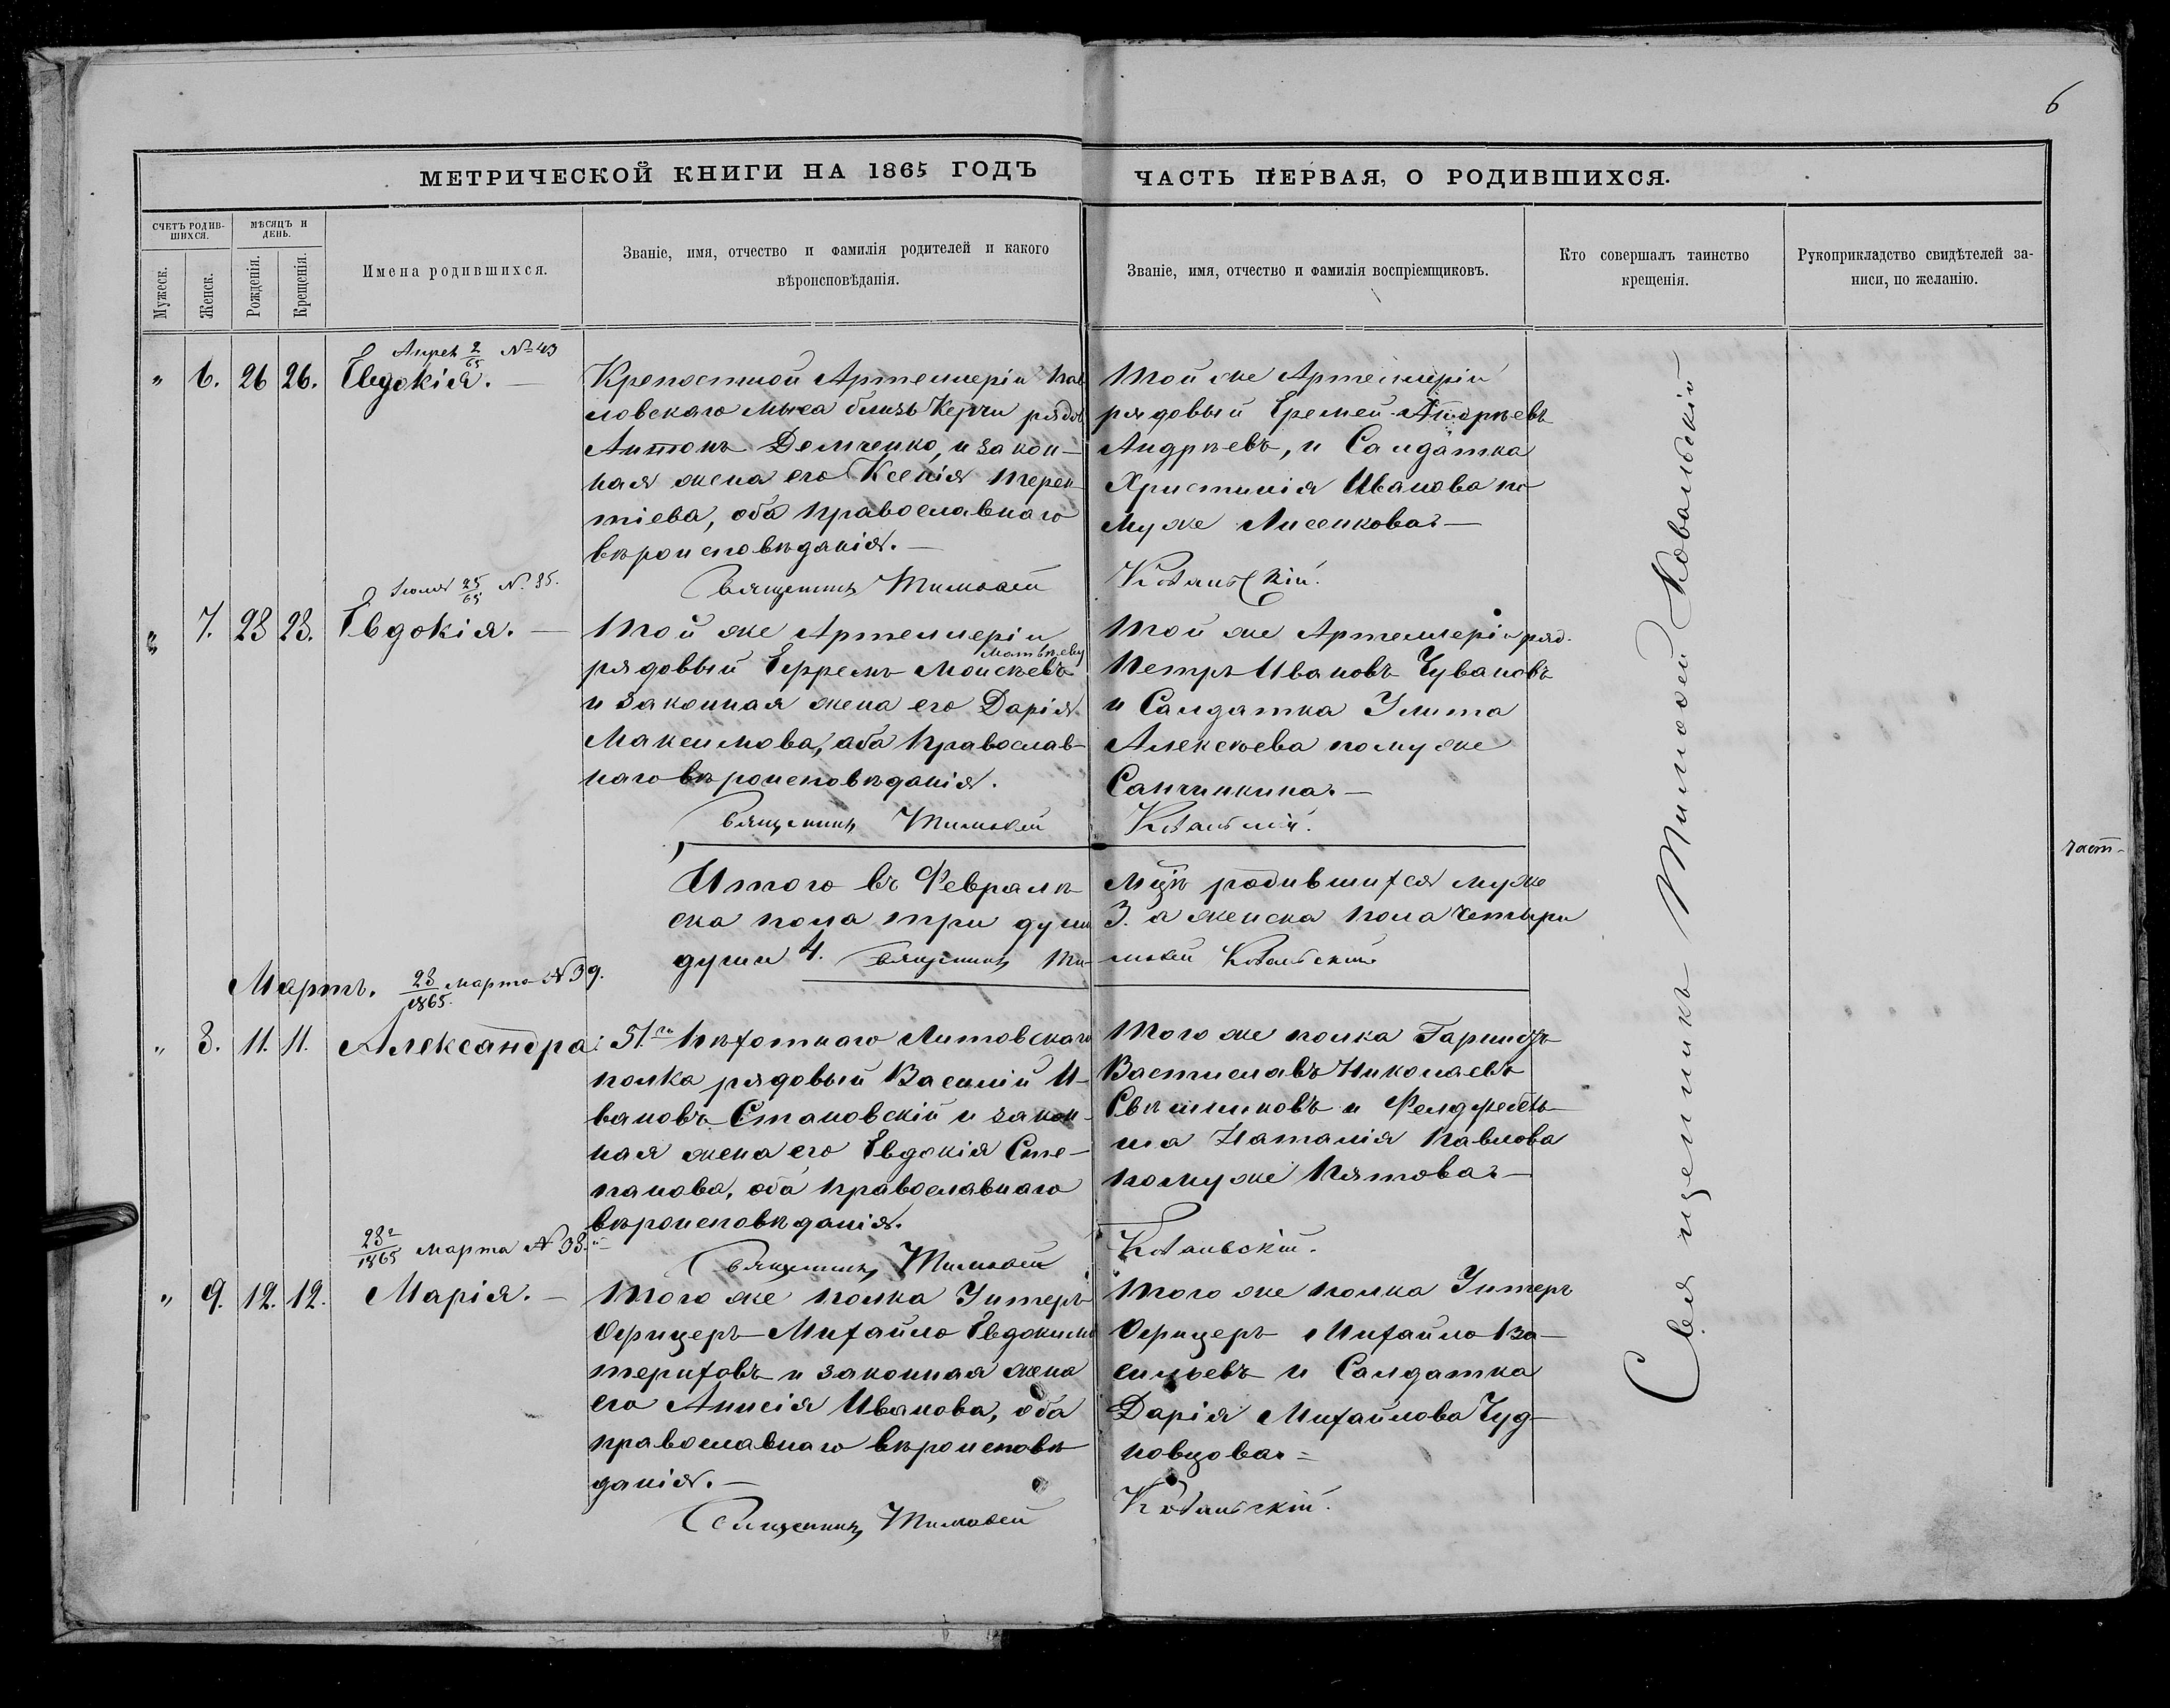 6
МЕТРИЧЕСКОЙ КНИГИ НА 1865 ГОДЪ
ЧАСТЬ ПЕРВАЯ, О РОДИВШИХСЯ.
СЧЕТЪ РОДИВ-
ШИХСЯ.
МѢСЯЦЪ И
ДЕНЬ.
Мужеск.
Женск.
Рожденія.
Крещенія.
Имена родившихся.
Званіе, имя, отчество и фамилія родителей и какого
вѣроисповѣданія.
Званіе, имя, отчество и фамилія воспріемщиковъ.
Кто совершалъ таинство
крещенія.
Рукоприкладство свидѣтелей за-
писи, по желанію.
Апрел 2/65 №43
" 6. 26 26. Евдокія. —
Крепостной Артеллеріи Пав
ловскаго мыса близь Керчи рядов
Антонъ Демченко, и закон-
ная жена его Ксенія Терен
тіева, оба православнаго
вѣроисповѣданія. —
Священникъ Тимофей
Той же Артеллеріи
рядовый Еремей
Андрѣевъ, и Салдатка
Христинія Иванова по
муже Лисенкова —
Ковальскій.
Іюля 25/65 №35.
" 7. 28 28. Евдокія. —
Той же Артеллеріи
Матвѣеву
рядовый Ефремъ Моисѣевъ
и законная жена его Дарія
Максимова, оба православ-
наго вѣроисповѣданія.
Священникъ Тимофей
Той же Артеллеріи ряд.
Петръ Ивановъ Чувановъ
и Салдатка Улита
Алексѣева по муже
Санчинкина. —
Ковальскій.
Итого въ Февралѣ мцѣ родившихся муже
ска пола три души 3. а женска пола четыри
души 4. Священникъ Тимофей Ковальскій
Мартъ. 28/1865. Марта №39.
" 8. 11. 11. Александра:
51.го Пѣхотнаго Литовскаго
полка рядовый Василій И-
вановъ Становскій и закон-
ная жена его Евдокія Сте-
панова, оба православнаго
вѣроисповѣданія.
Священникъ Тимофей
Того же полка
Вастиславъ Николаевъ
Свѣшниковъ и Фелдфебель-
ша Наталія Павлова
по муже Пятова —
Ковальскій.
28/1865 Марта №38.
" 9. 12. 12. Марія. —
Того же полка Унтеръ
Офицеръ Михайло Евдокимъ
Териховъ и законная жена
его Анисія Иванова, оба
православнаго вѣроисповѣ
данія. —
Священникъ Тимофей
Того же полка Унтеръ
Офицеръ Михайло Ва-
сильевъ и Салдатка
Дарія Михайлова Чуд-
новцова =
Ковальскій.
Священникъ Тимофей Ковальскій
част-